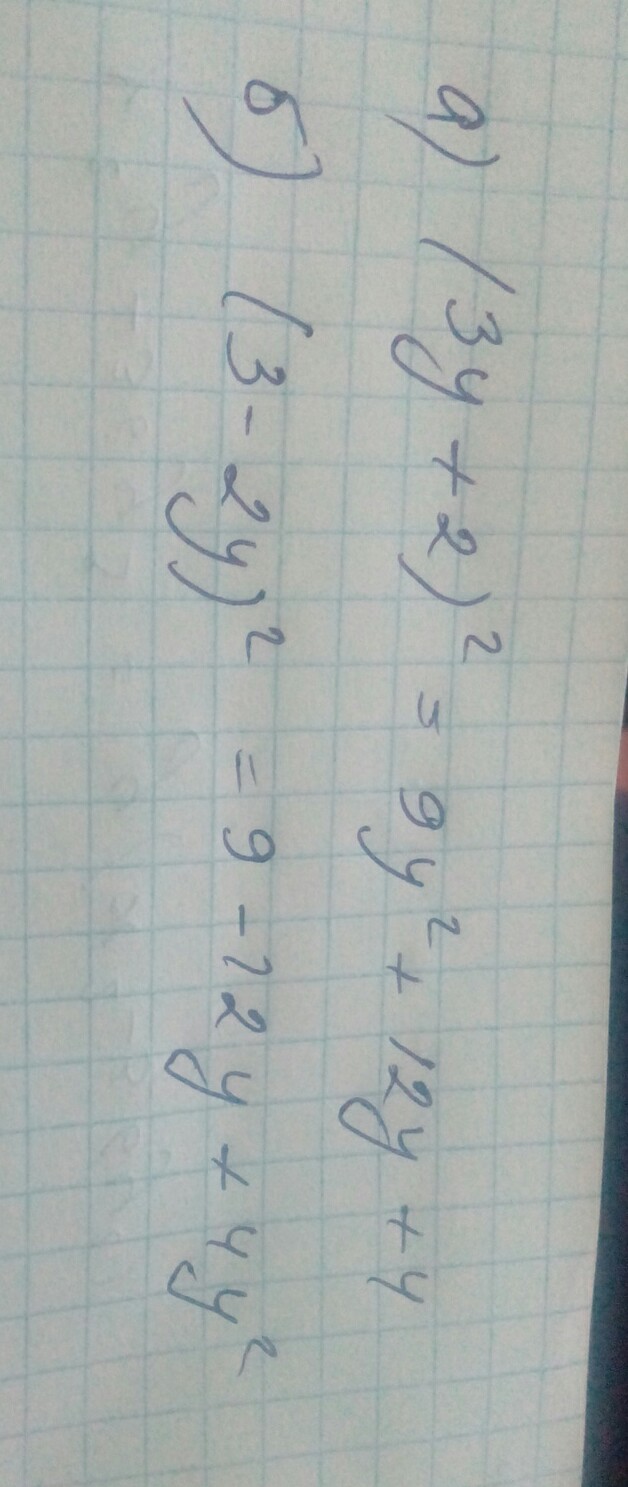 а) (3y + 2)² = 9y² + 12y + 4
б) (3 - 2y)² = 9 - 12y + 4y²